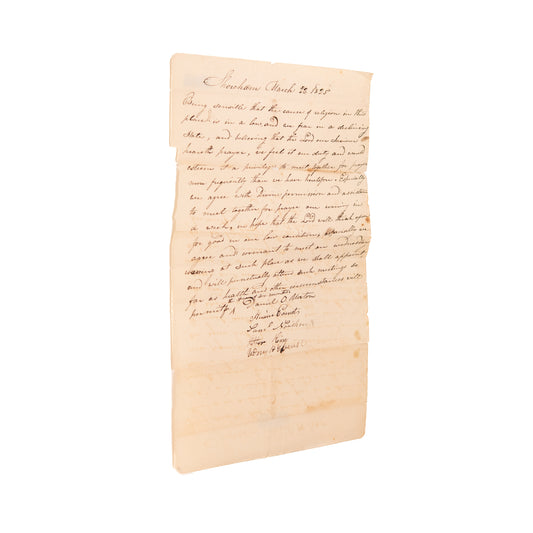 Shoreham March 22 1825
Being sensible that the cause of religion in this
place is in a low and we fear in a declining
state, and believing that the Lord our
heareth prayer, we feel it our duty and would
esteem it a privilege to meet together for prayer
more frequently than we have heretofore. Especially
we agree with Divine permission and assistance
to meet together for prayer one evening in
a week, in hope that the Lord will think upon
for good in our low condition, Especially we
agree and covenant to meet on wednesday
evening at such place as we shall appoint
and will punctually attend such meetings so
far as health and other circumstances will
permit
Daniel O Morton